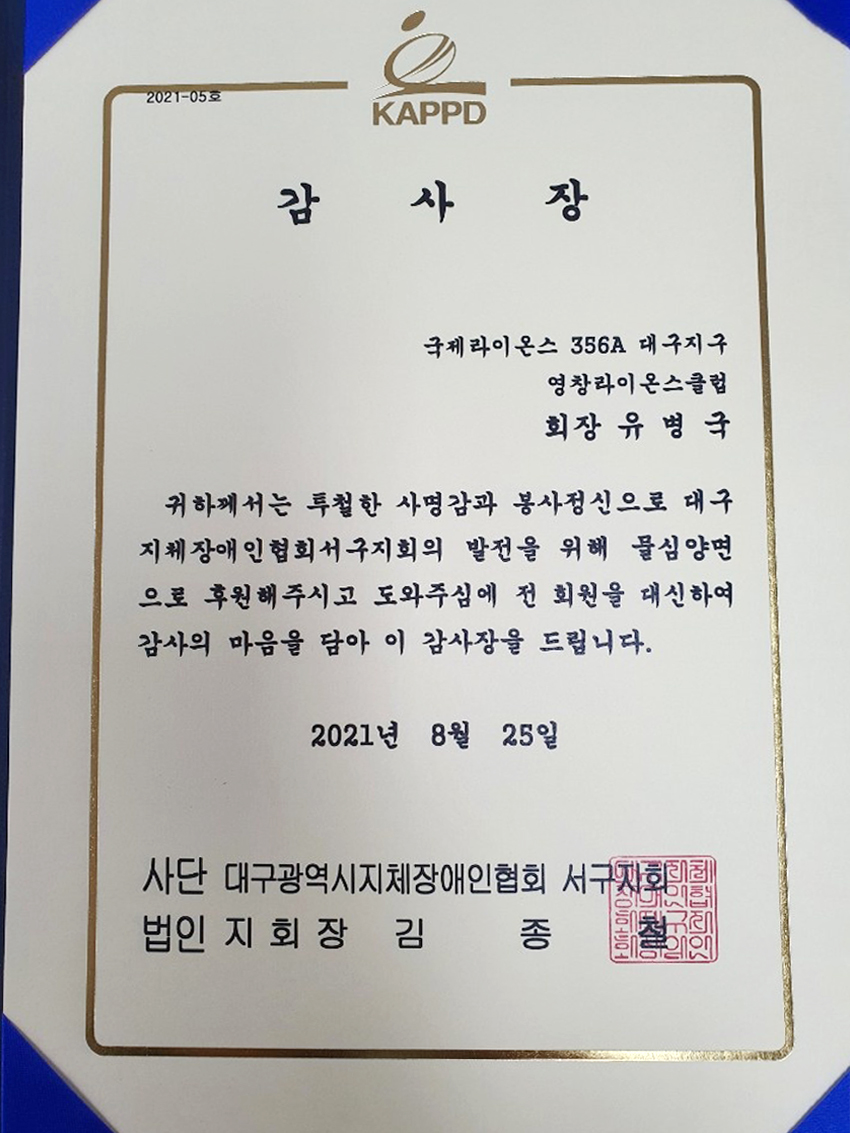 KAPPD
2021-05호
감 사 장
국제라이온스 356A 대구지구
영창라이온스클럽
회장 유 병 국
귀하께서는 투철한 사명감과 봉사정신으로 대구
지체장애인협회서구지회의 발전을 위해 물심양면
으로 후원해주시고 도와주심에 전 회원을 대신하여
감사의 마음을 담아 이 감사장을 드립니다.
2021년 8월 25일
사단 대구광역시지체장애인협회 서구지회
법인 지 회 장 김 종 철